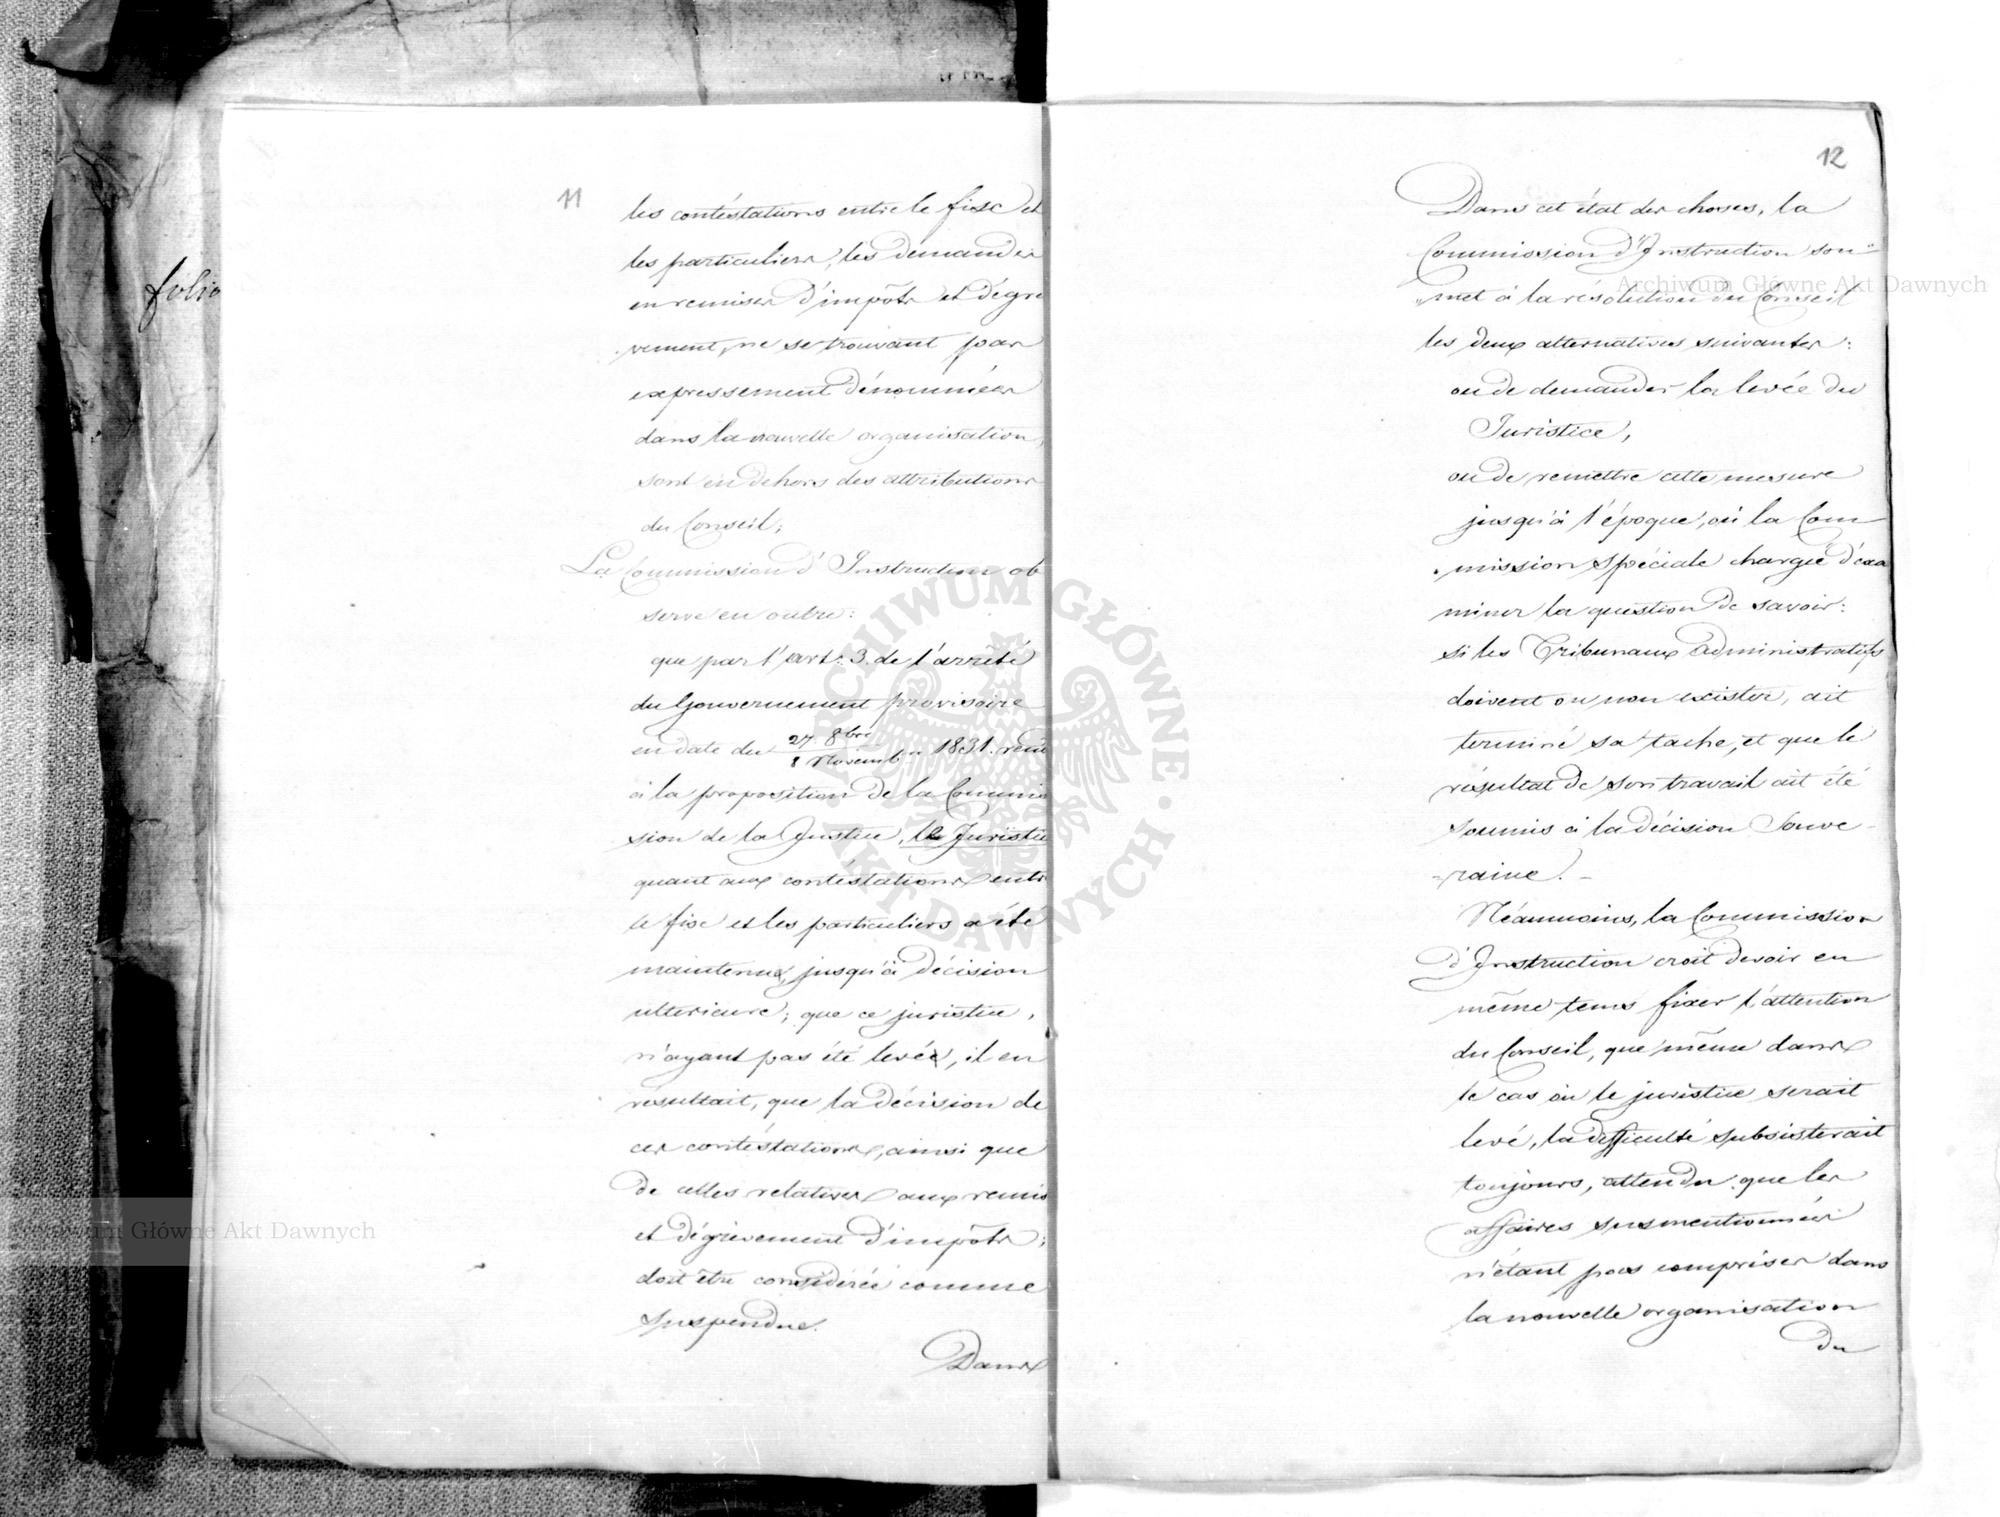 folio
11
les contéstations entre le fisc et
les particuliers, les demandes
en remises d'impôts et dégre
vement, ne se trouvant pas
expressement dénommées
dans la nouvelle organisation,
sont en dehors des attributions
du Conseil;
La Commission d'Instruction ob
serve en outre:
que par l'art. 3. de l'arrêté
du Gouvernement provisoire
en date du 27. 8bre / 8 Novemb. 1831. rend
à la proposition de la Commis
sion de la Justice, le Juristice
quant aux contéstations entre
le fisc et les particuliers a été
maintenu, jusqu'à décision
ulterieure; que ce juristice,
n'ayant pas été levé, il en
résultait, que la décision de
ces contéstations, ainsi que
de celles relatives aux remis
et dégrèvement d'impôts;
doit être considérée comme
suspendue.
Dans
12
Dans cet état des choses, la
Commission d'Instruction sou=
=met à la résolution du Conseil
les deux alternatives suivantes:
ou de demander la levée du
Juristice,
ou de remettre cette mesure
jusqu'à l'époque, où la Com
mission spéciale chargée d'exa
miner la question de savoir:
si les Tribunaux administratifs
doivent ou non exister, ait
terminé sa tache, et que le
résultat de son travail ait été
soumis à la décision Souve-
-raine.-
Néanmoins, la Commission
d'Instruction croit devoir en
même tems fixer l'attention
du Conseil, que même dans
le cas où le juristice serait
levé, la difficulté subsisterait
toujours, attendu que les
affaires susmentionnées
n'étant pas comprises dans
la nouvelle organisation
du
Archiwum Główne Akt Dawnych
Archiwum Główne Akt Dawnych
ARCHIWUM GŁÓWNE · AKT DAWNYCH ·